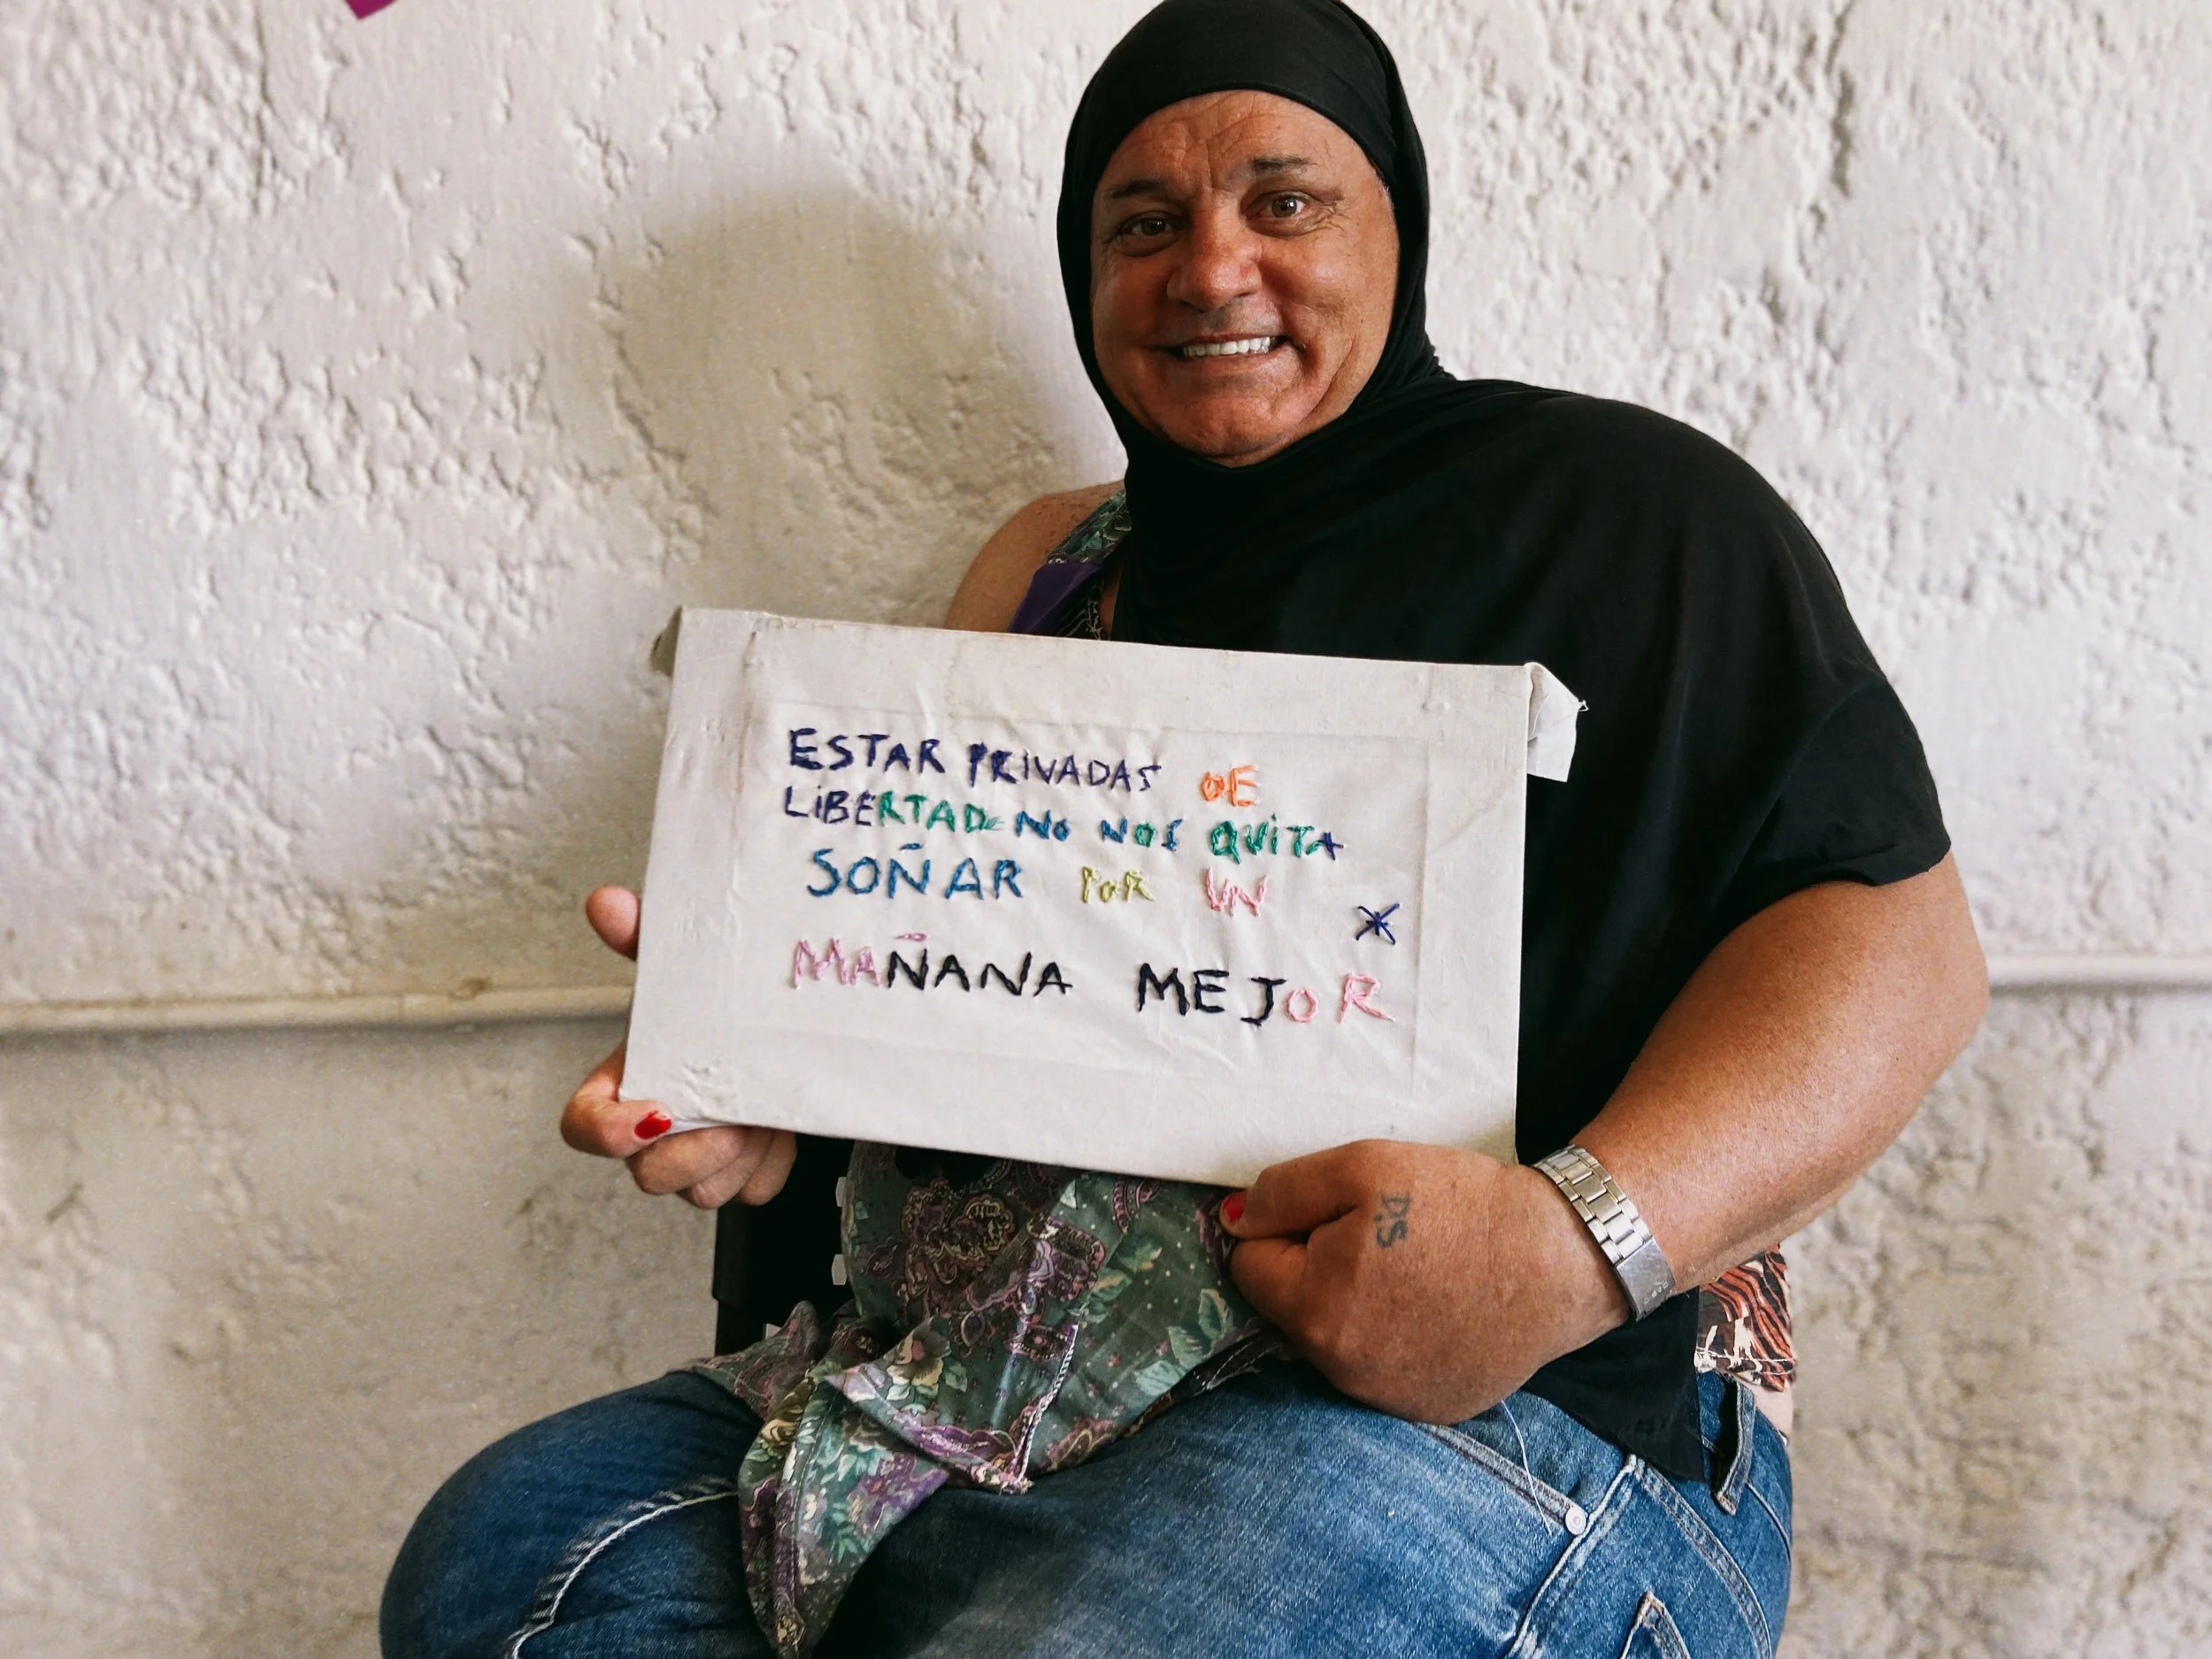 ESTAR PRIVADAS DE
LiBERTAD NO NOS QUiTA
SOÑAR POR UN
MAÑANA MEJOR
D.S